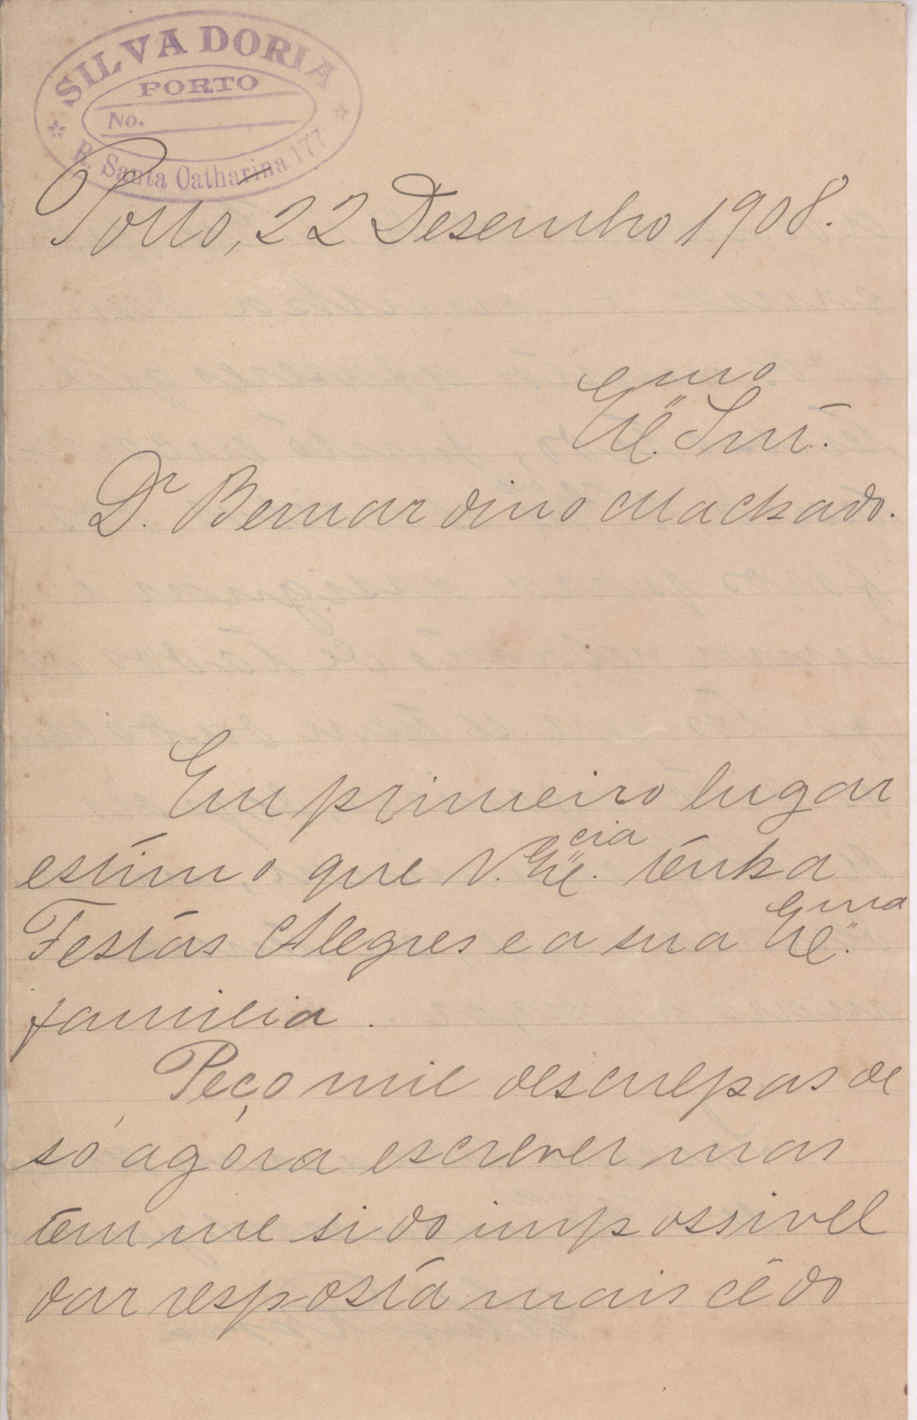 SILVA DORIA
PORTO
No.
R. Santa Catharina 177
Porto, 22 Desembro 1908.
Exmo
Snr.
Dr. Bernardino Machado.
Em primeiro lugar
estimo que V. Excia. tenha
Festas Alegres e a sua Exma.
familia.
Peço mil desculpas de
só agora escrever mas
tem me sido impossivel
dar resposta mais cêdo